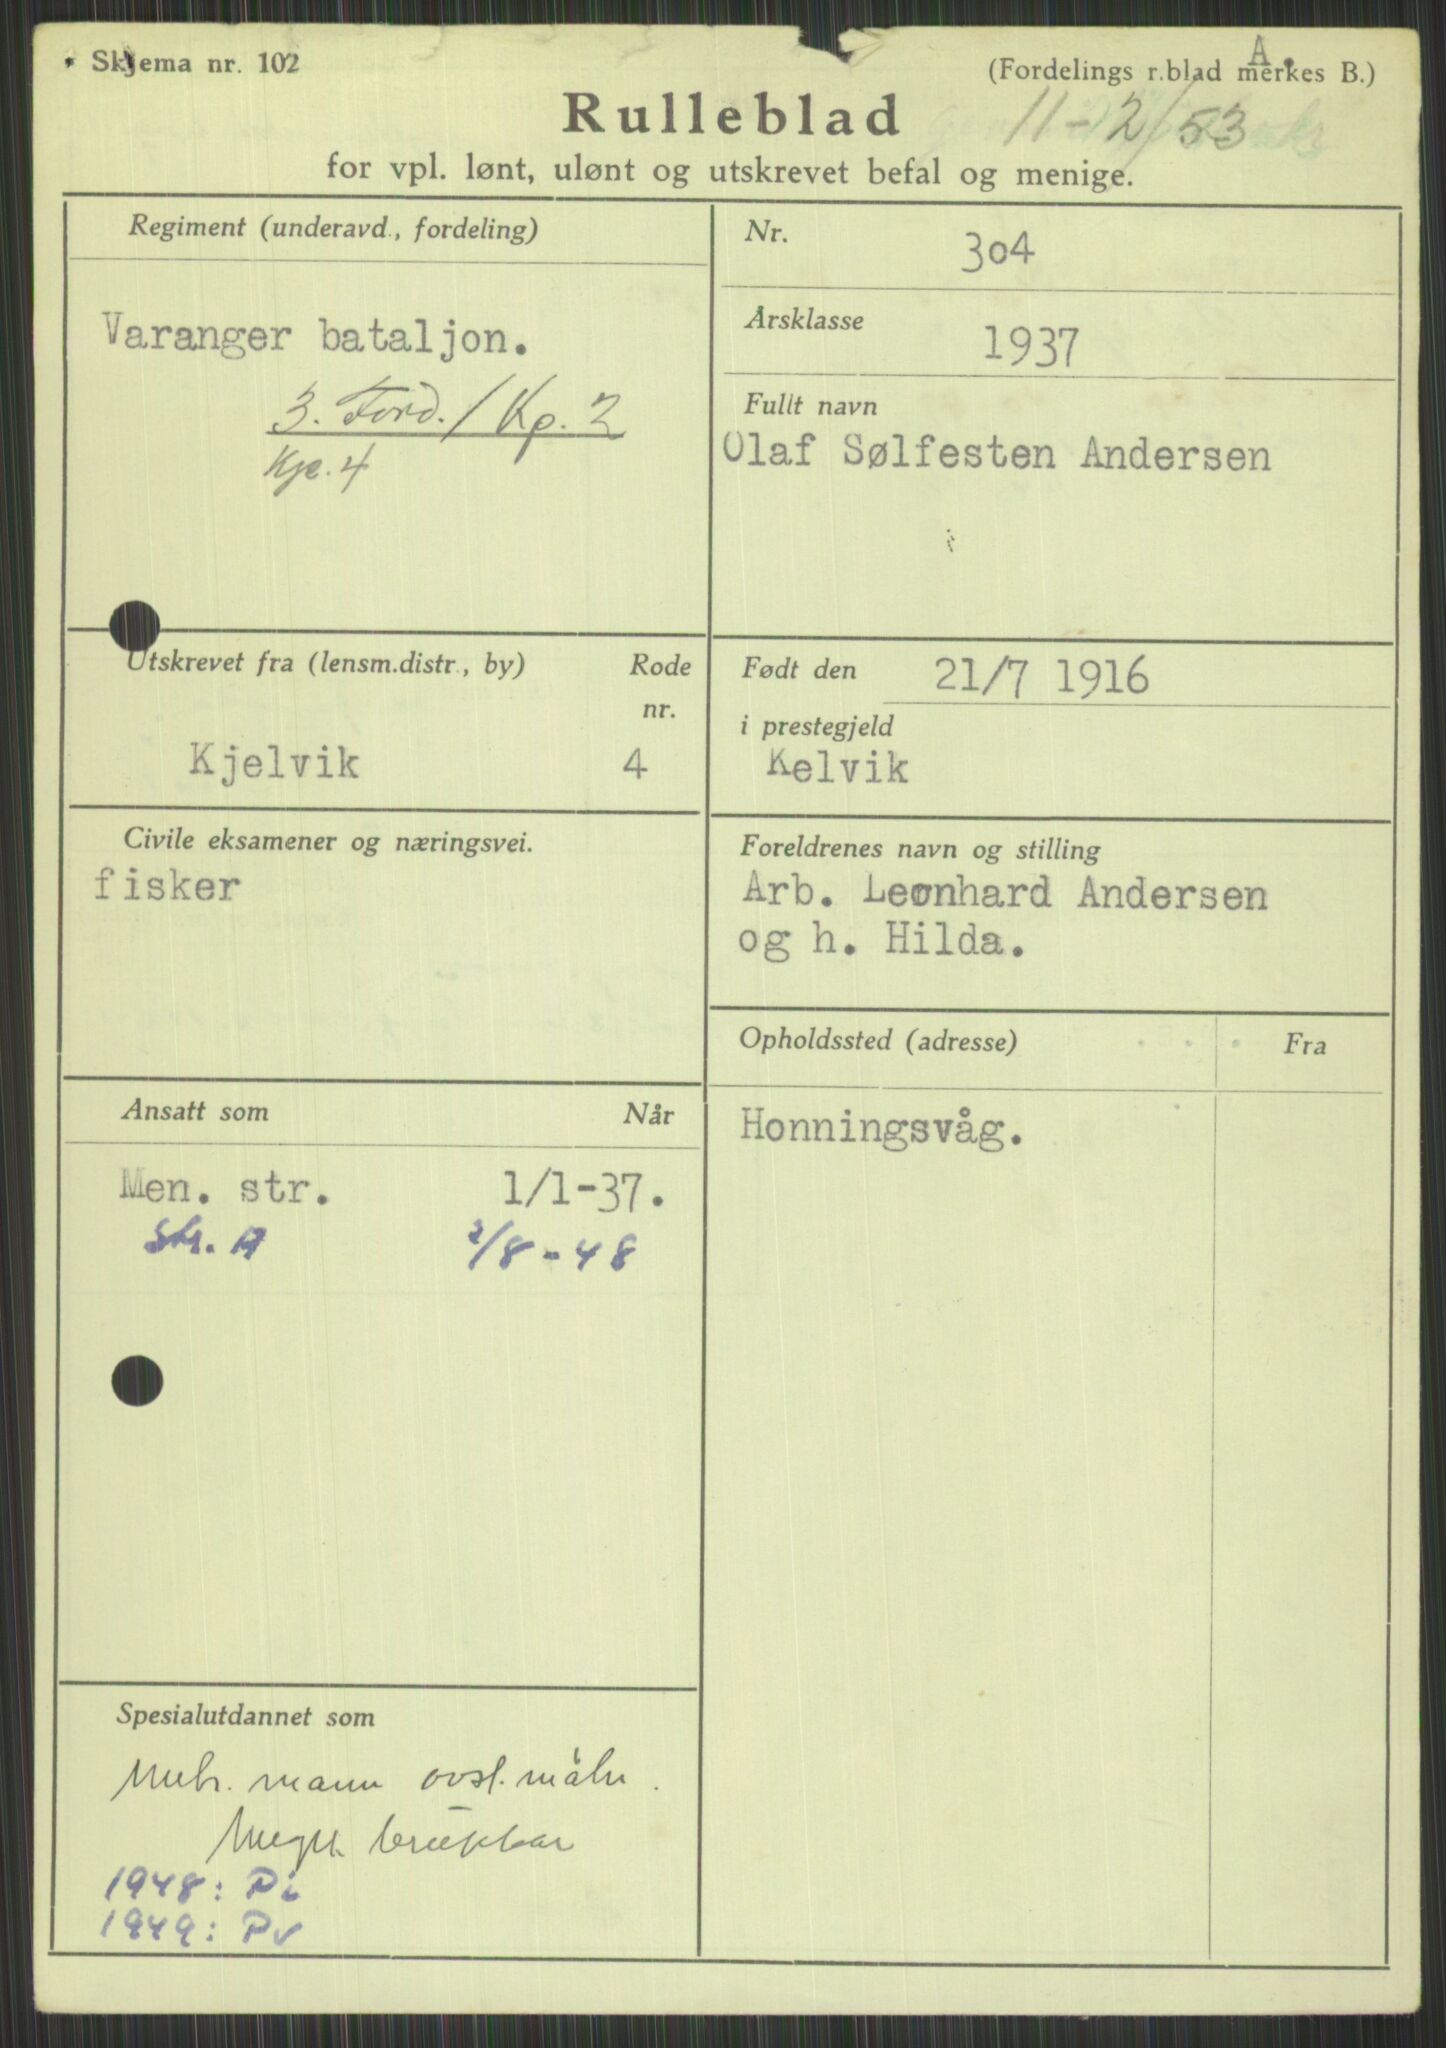 Skjema nr. 102
A.
(Fordelings r.blad merkes B.)
11-2/53
Rulleblad
for vpl. lønt, ulønt og utskrevet befal og menige.
Regiment (underavd., fordeling)
Varanger bataljon.
3. Ford. / Kp. 2
Kje. 4
Nr.
304
Årsklasse
1937
Fullt navn
Olaf Sølfesten Andersen
Utskrevet fra (lensm.distr., by) Rode
nr.
Kjelvik 4
Født den 21/7 1916
i prestegjeld
Kelvik
Civile eksamener og næringsvei.
fisker
Foreldrenes navn og stilling
Arb. Leonhard Andersen
og h. Hilda.
Opholdssted (adresse) Fra
Honningsvåg.
Ansatt som Når
Men. str. 1/1-37.
Str. A 2/8-48
Spesialutdannet som
mann
brukbar
1948: Pi
1949: Pv